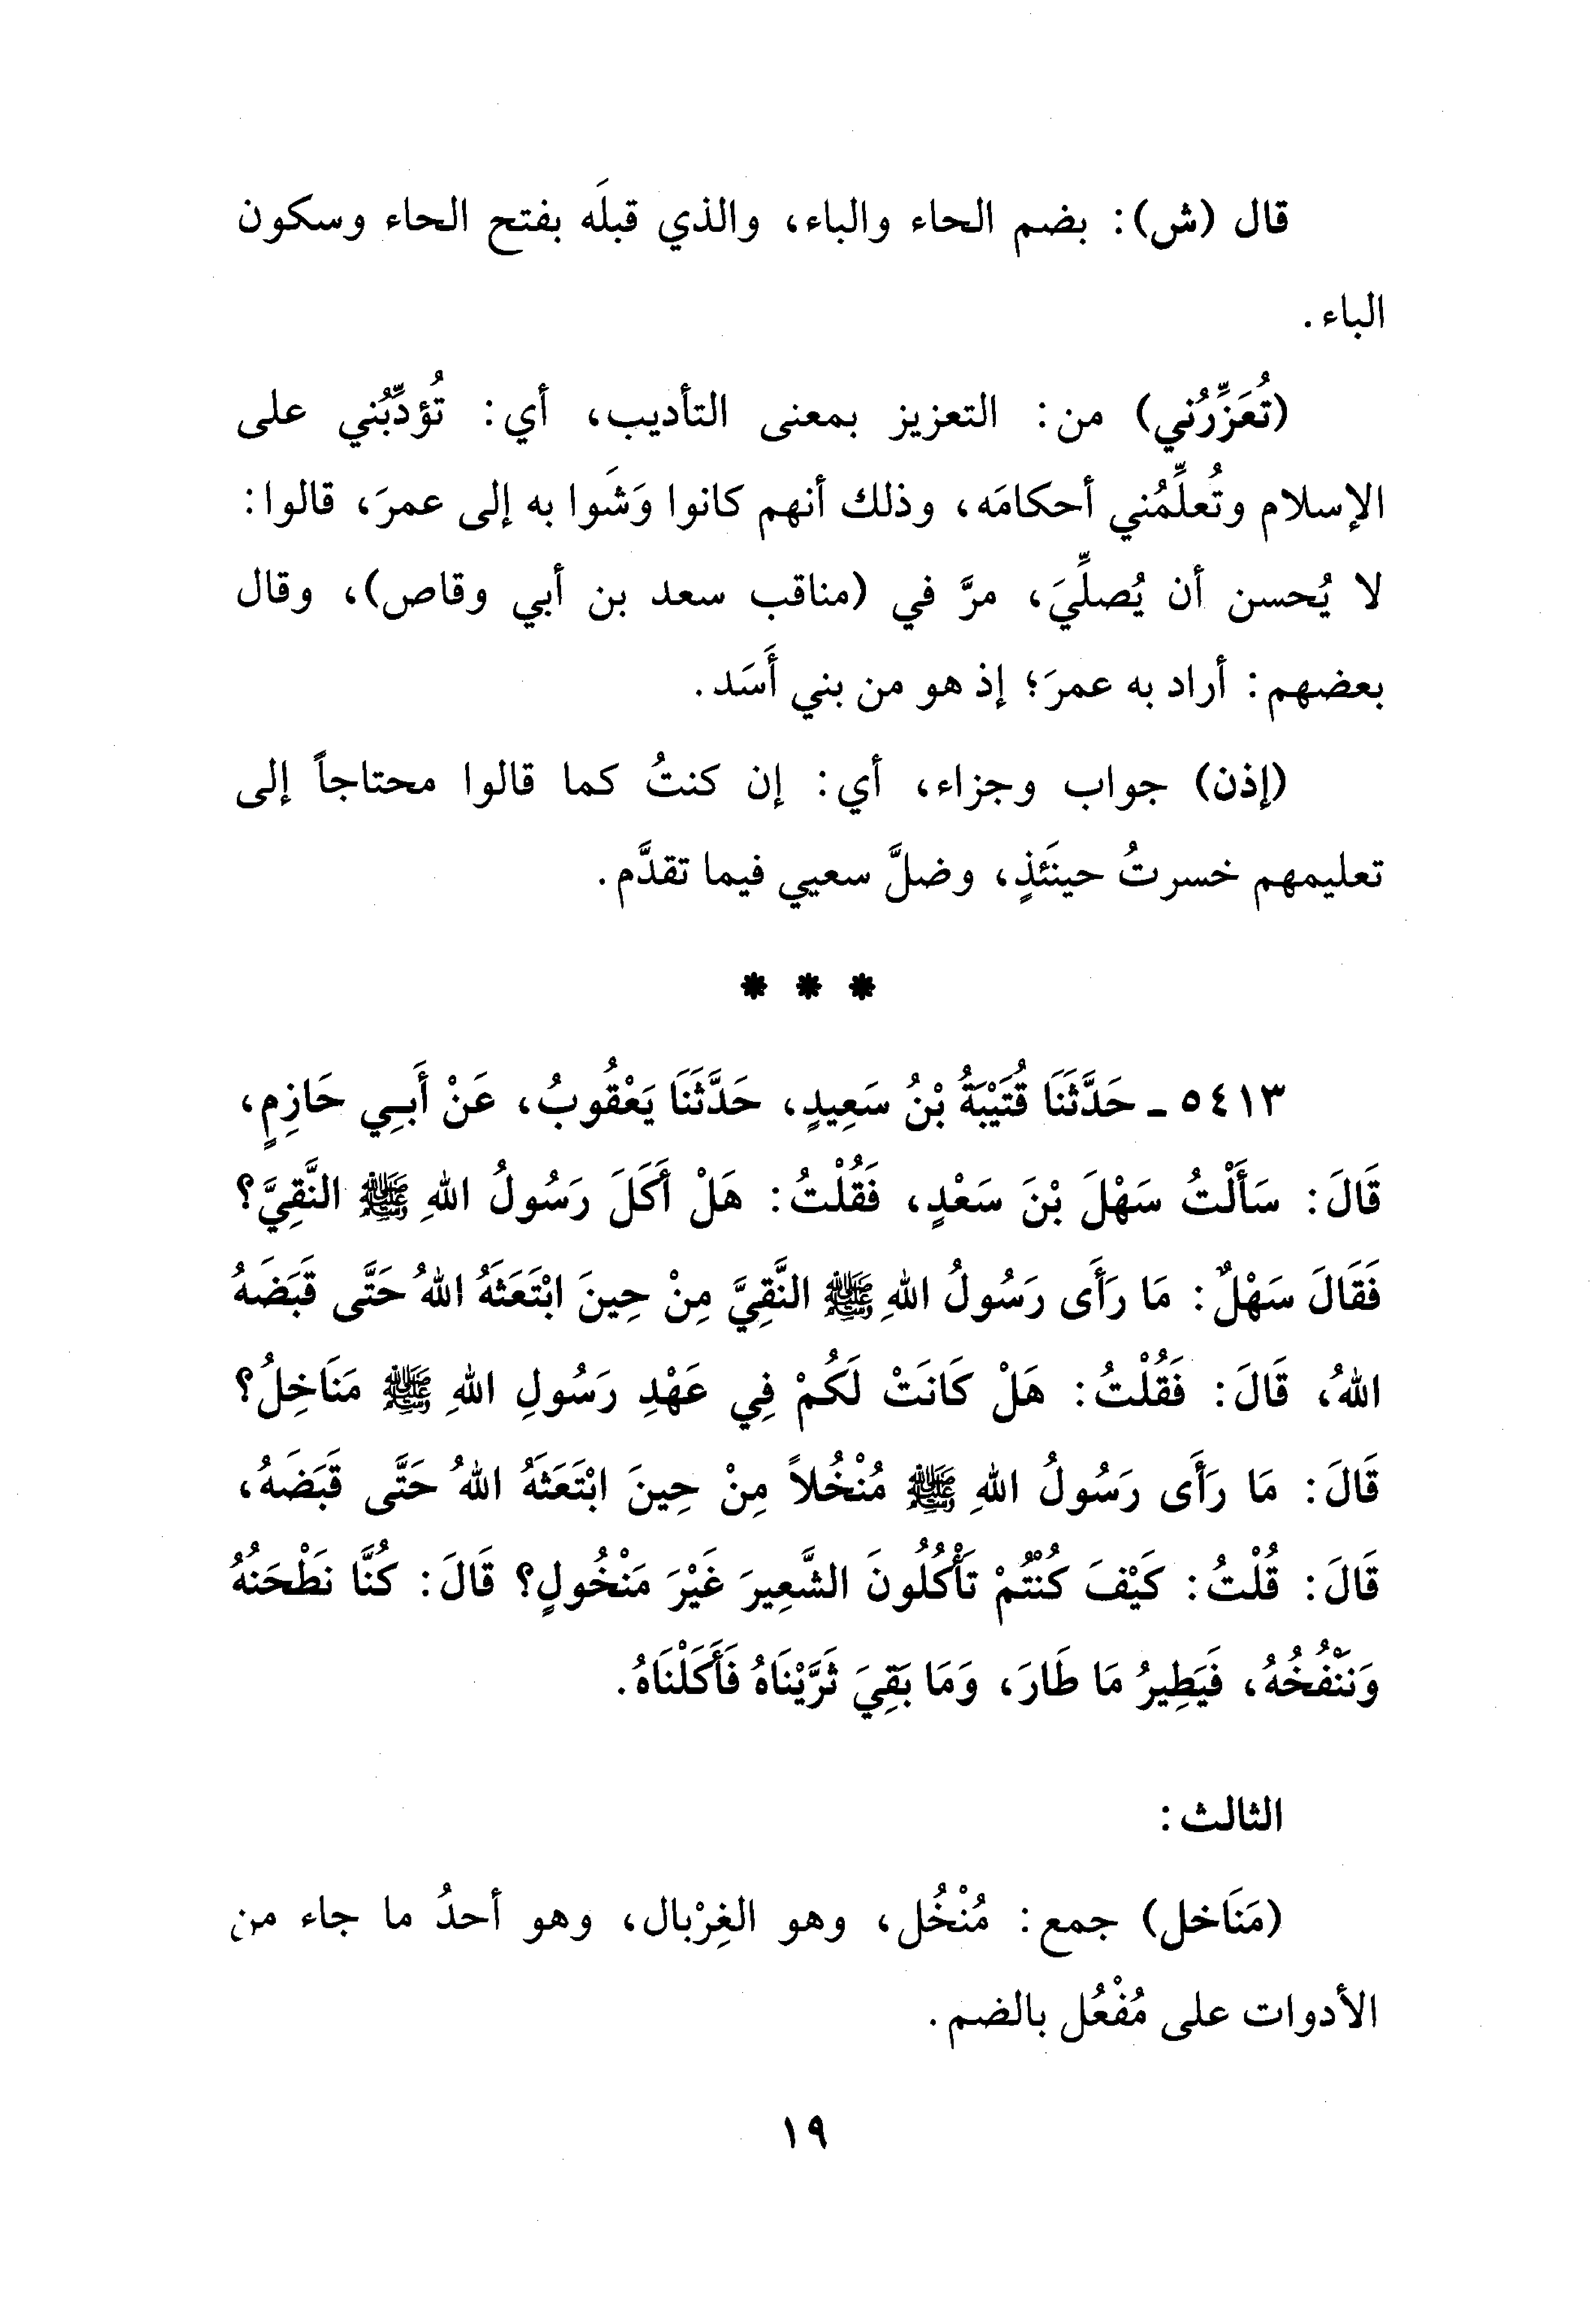 قال (ش): بضم الحاء والباء، والذي قبلَه بفتح الحاء وسكون
الباء.
(تُعَزِّرُني) من: التعزيز بمعنى التأديب، أي: تُؤدِّبُني على
الإسلام وتُعلِّمُني أحكامَه، وذلك أنهم كانوا وَشَوا به إلى عمرَ، قالوا:
لا يُحسن أن يُصلِّيَ، مرَّ في (مناقب سعد بن أبي وقاص)، وقال
بعضهم: أراد به عمرَ؛ إذ هو من بني أَسَد.
(إذن) جواب وجزاء، أي: إن كنتُ كما قالوا محتاجاً إلى
تعليمهم خسرتُ حينَئذٍ، وضلَّ سعيي فيما تقدَّم.
* * *
٥٤١٣ - حَدَّثَنَا قُتَيْبَةُ بْنُ سَعِيدٍ، حَدَّثَنَا يَعْقُوبُ، عَنْ أَبِي حَازِمٍ،
قَالَ: سَأَلْتُ سَهْلَ بْنَ سَعْدٍ، فَقُلْتُ: هَلْ أَكَلَ رَسُولُ اللهِ ﷺ النَّقِيَّ؟
فَقَالَ سَهْلٌ: مَا رَأَى رَسُولُ اللهِ ﷺ النَّقِيَّ مِنْ حِينَ ابْتَعَثَهُ اللهُ حَتَّى قَبَضَهُ
اللهُ، قَالَ: فَقُلْتُ: هَلْ كَانَتْ لَكُمْ فِي عَهْدِ رَسُولِ اللهِ ﷺ مَنَاخِلُ؟
قَالَ: مَا رَأَى رَسُولُ اللهِ ﷺ مُنْخُلاً مِنْ حِينَ ابْتَعَثَهُ اللهُ حَتَّى قَبَضَهُ،
قَالَ: قُلْتُ: كَيْفَ كُنْتُمْ تَأْكُلُونَ الشَّعِيرَ غَيْرَ مَنْخُولٍ؟ قَالَ: كُنَّا نَطْحَنُهُ
وَنَنْفُخُهُ، فَيَطِيرُ مَا طَارَ، وَمَا بَقِيَ ثَرَّيْنَاهُ فَأَكَلْنَاهُ.
الثالث:
(مَنَاخل) جمع: مُنْخُل، وهو الغِرْبال، وهو أحدُ ما جاء من
الأدوات على مُفْعُل بالضم.
١٩